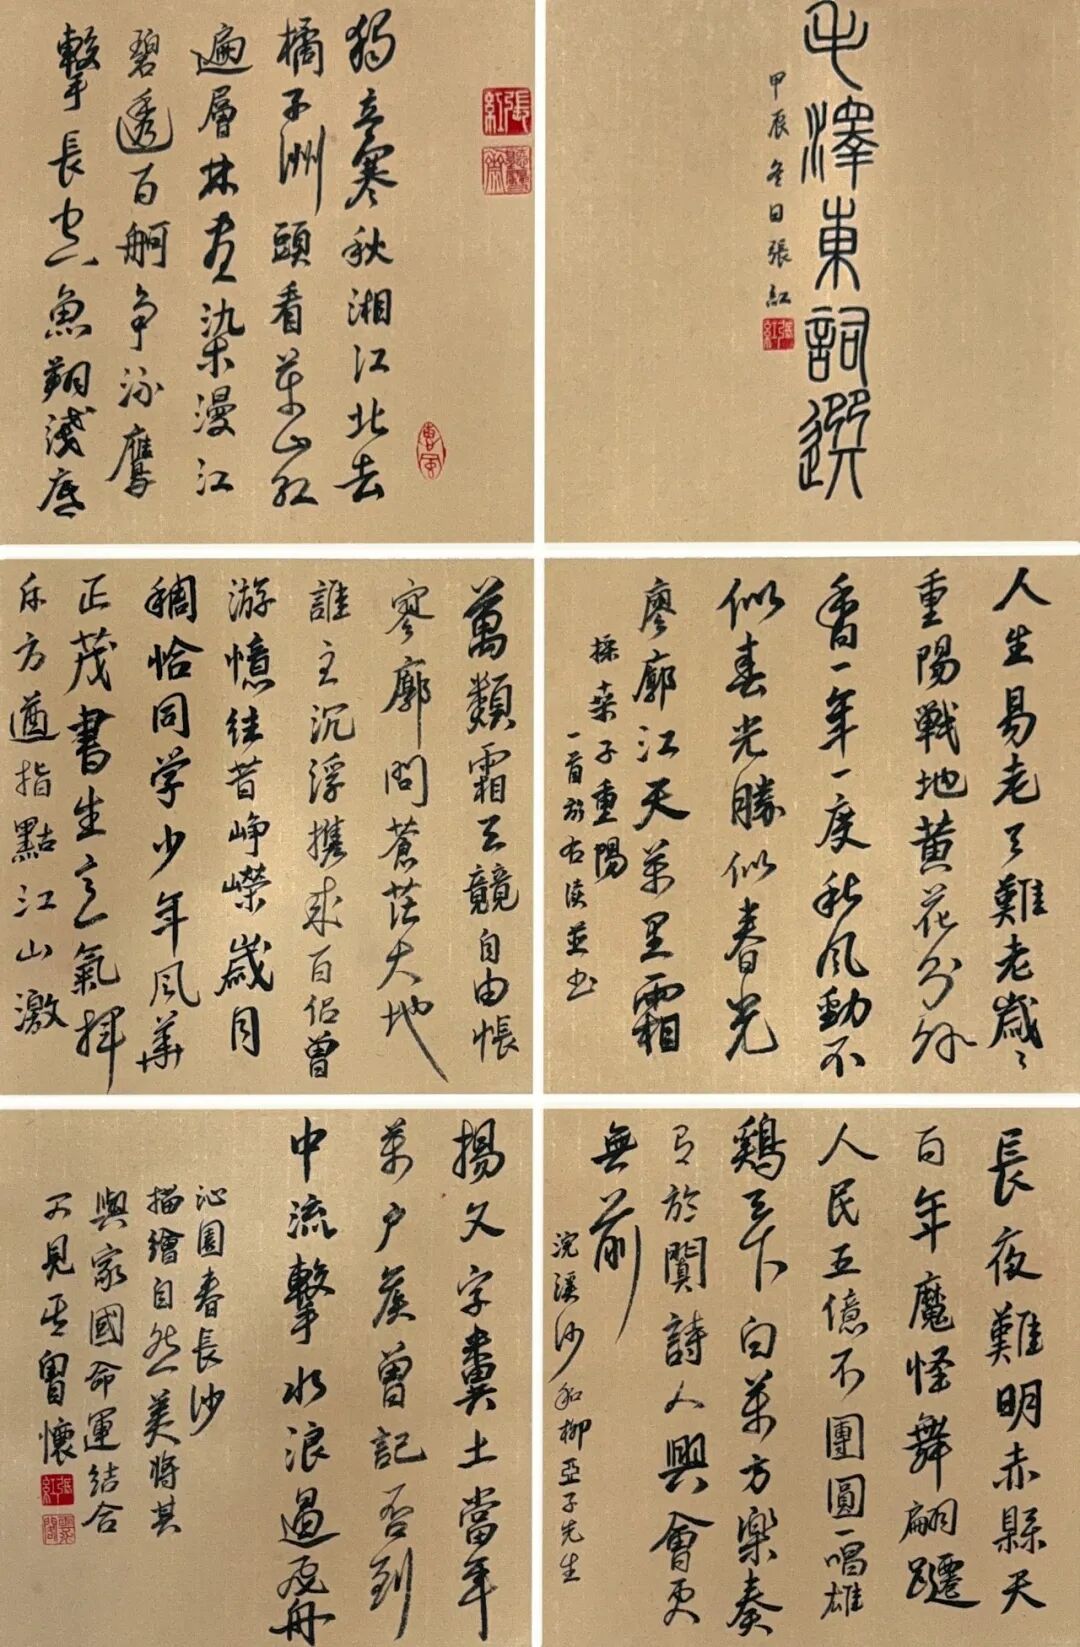 毛澤東詞選
甲辰冬日張紅
張紅
人生易老天難老歲〻
重陽戰地黄花分外
香一年一度秋風動不
似春光勝似春光
廖廓江天萬里霜
採桑子重陽
一首 並书
長夜難明赤縣天
百年魔怪舞翩躚
人民五億不團圓一唱雄
鷄天下白萬方樂奏
有於闐詩人興會更
無前
浣溪沙和柳亞子先生
張紅
獨立寒秋湘江北去
橘子洲頭看萬山紅
遍層林盡染漫江
碧透百舸争流鷹
擊長空魚翔淺底
萬類霜天競自由悵
寥廓問蒼茫大地
誰主沉浮攜來百侶曾
游憶往昔崢嶸歲月
稠恰同学少年風華
正茂書生意氣揮
斥方遒指點江山激
揚文字糞土當年
萬户侯曾記否到
中流擊水浪遏飛舟
沁園春長沙
描繪自然美將其
與家國命運結合
可見其胷懷
張紅